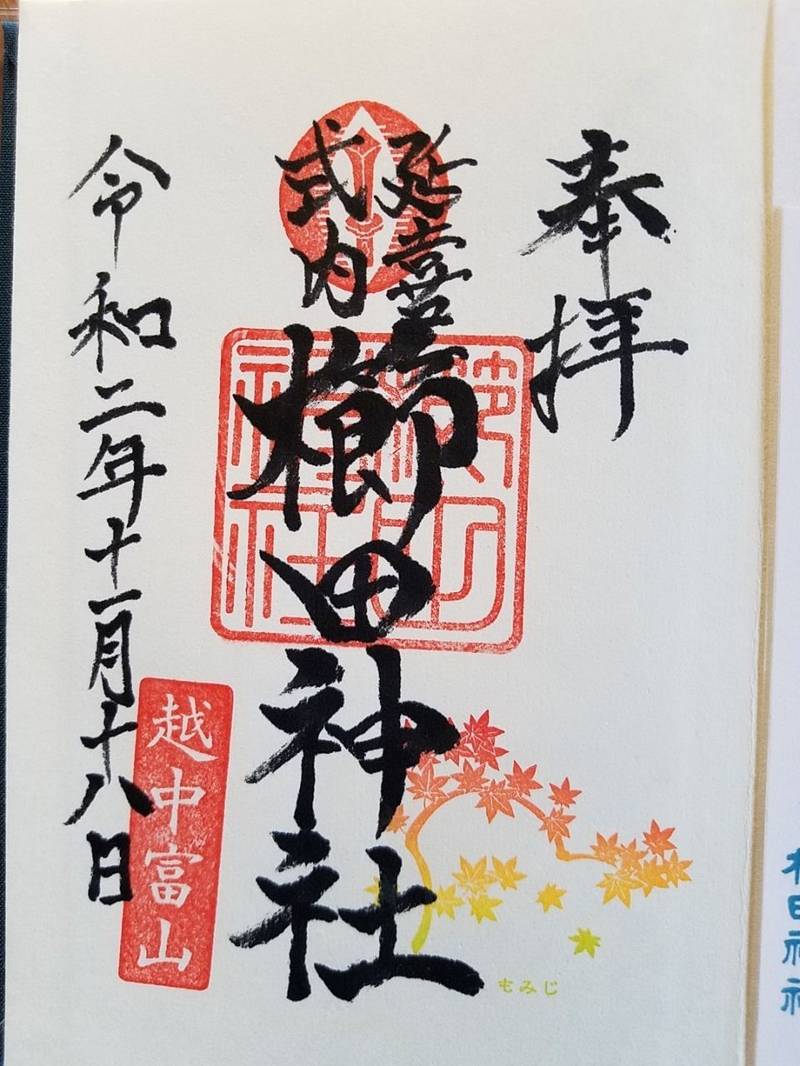 奉拝
延喜
式内
櫛田神社
令和二年十一月十八日
越中富山
もみじ